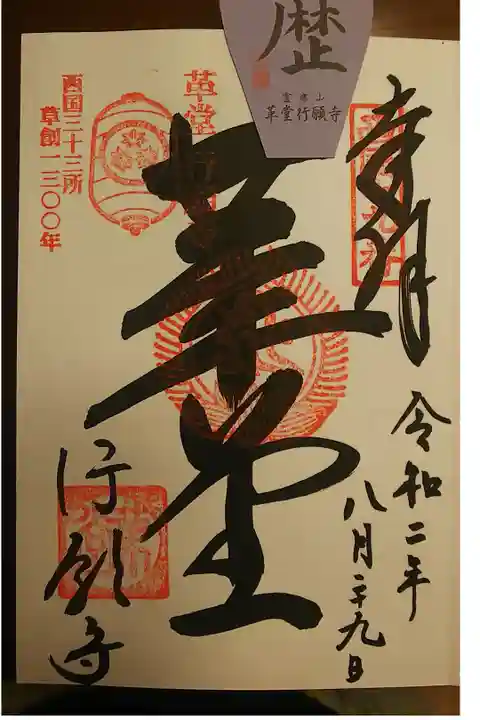 歴
霊麀山
革堂行願寺
奉拝
令和二年
八月二十九日
革堂
革堂
行願寺
西国三十三所
草創一三〇〇年